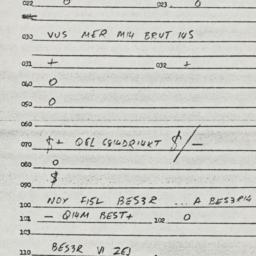 022 0 023 0
030 VUS MER M14 BRUT 14S
031 + 032 +
040 0
050 0
060
070 $+ QEL C814DR14KT $/—
080 0
090 $
100 NOY F15L BES3R ... A BES3R14
101 — Q14M BEST+ 102 0
103
110 BES3R VI ZEJ